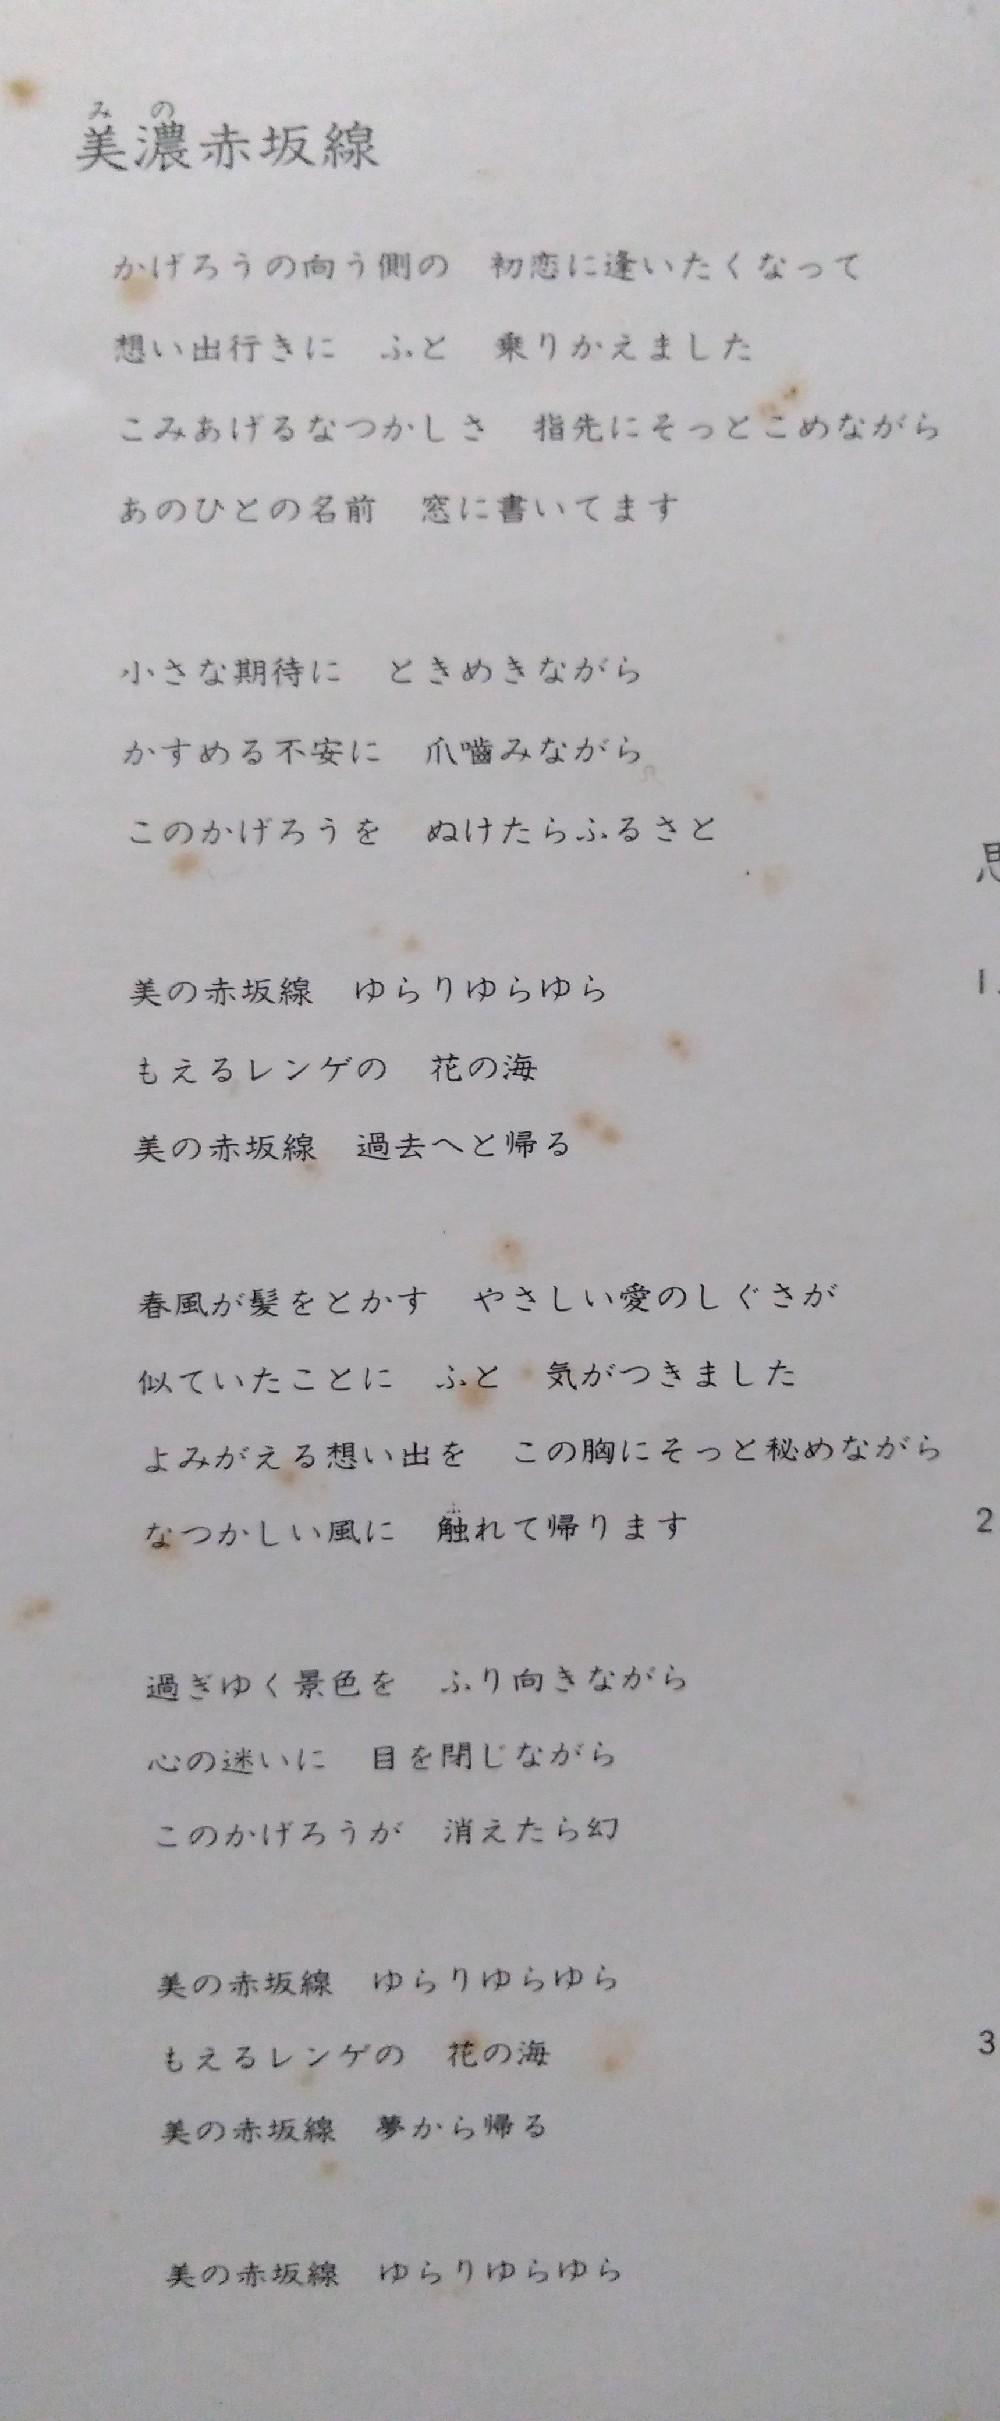 みの
美濃赤坂線
かげろうの向う側の　初恋に逢いたくなって
想い出行きに　ふと　乗りかえました
こみあげるなつかしさ　指先にそっとこめながら
あのひとの名前　窓に書いてます
小さな期待に　ときめきながら
かすめる不安に　爪嚙みながら
このかげろうを　ぬけたらふるさと
美の赤坂線　ゆらりゆらゆら
もえるレンゲの　花の海
美の赤坂線　過去へと帰る
春風が髪をとかす　やさしい愛のしぐさが
似ていたことに　ふと　気がつきました
よみがえる想い出を　この胸にそっと秘めながら
ふ
なつかしい風に　触れて帰ります
過ぎゆく景色を　ふり向きながら
心の迷いに　目を閉じながら
このかげろうが　消えたら幻
美の赤坂線　ゆらりゆらゆら
もえるレンゲの　花の海
美の赤坂線　夢から帰る
美の赤坂線　ゆらりゆらゆら
1.
2
3